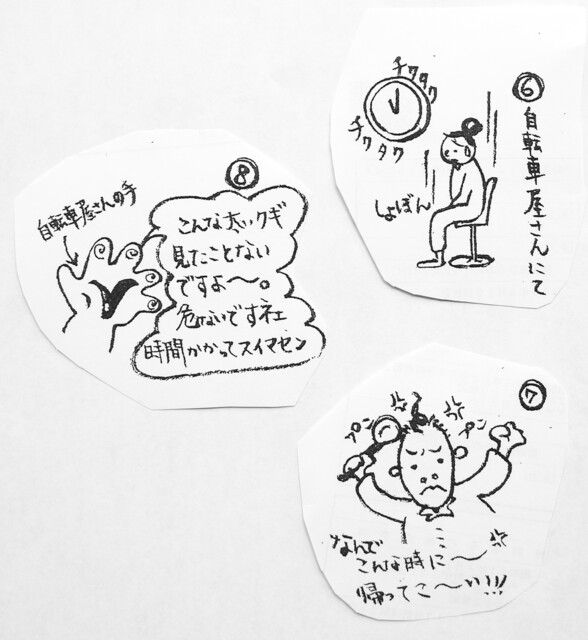 ⑥
自転車屋さんにて
チクタク
チクタク
しょぼん
⑦
プン
プン
なんで
こんな時に〜
帰ってこ〜い!!!
⑧
自転車屋さんの手
こんな太いクギ
見たことない
ですよ〜。
危ないですネェ
時間かかってスイマセン